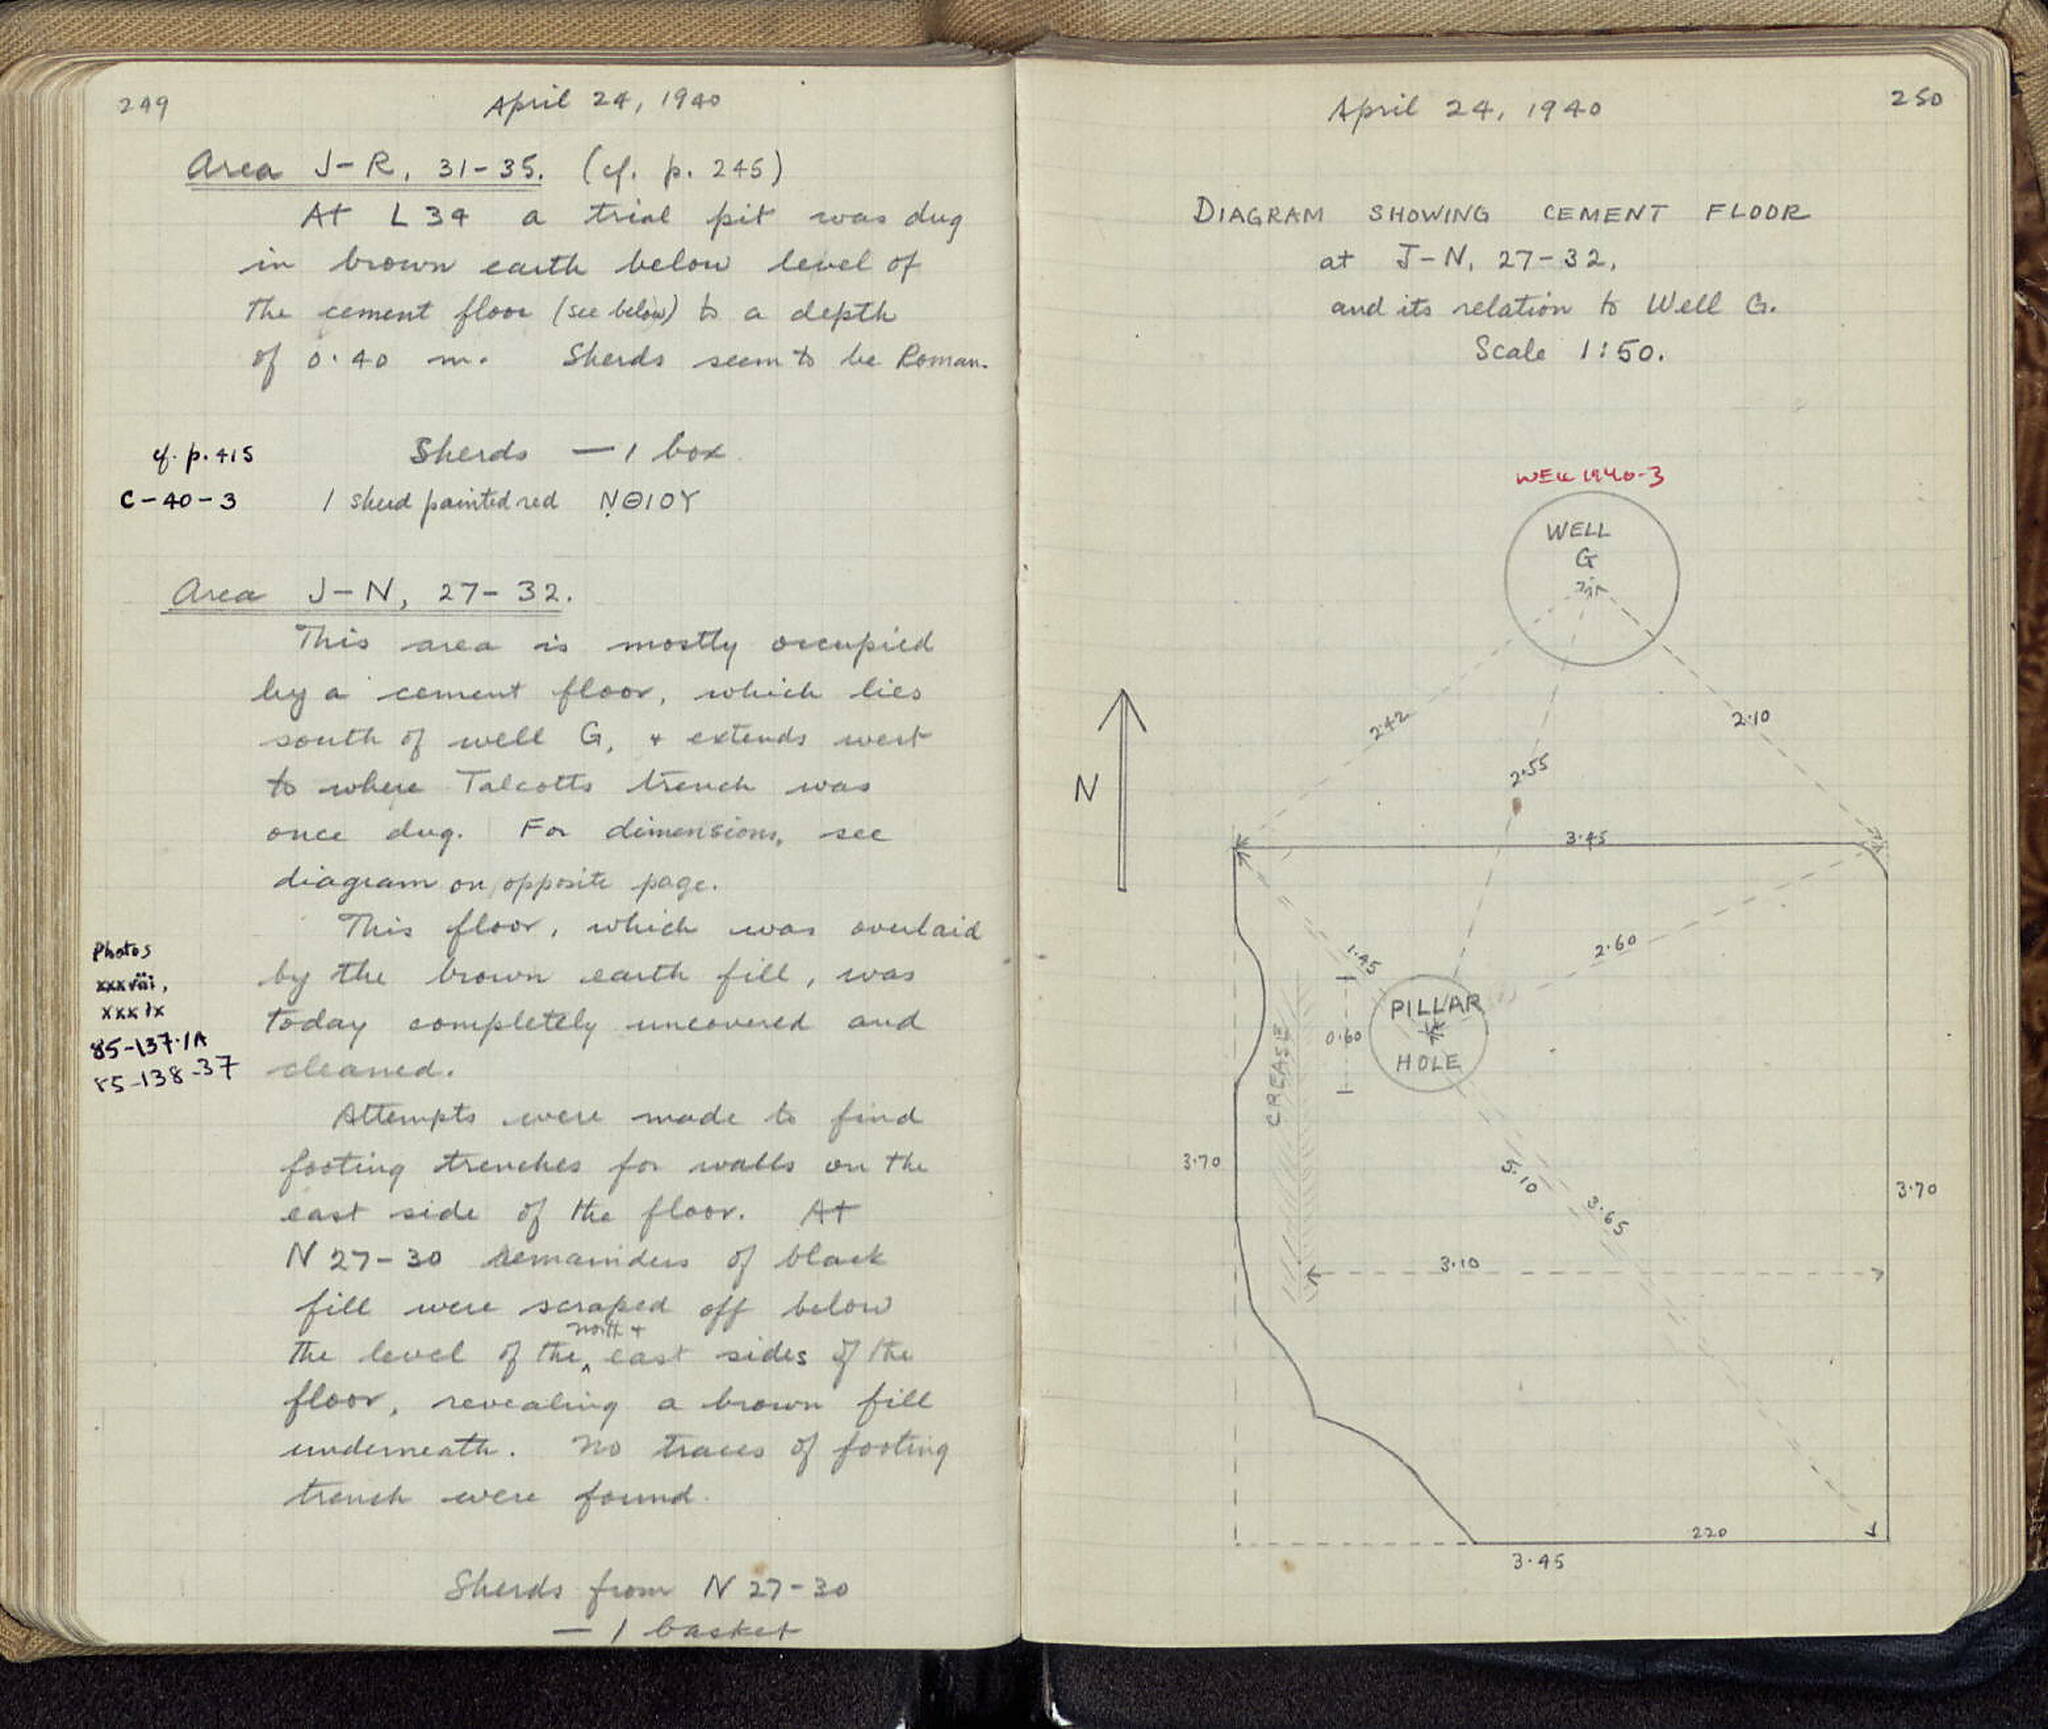 249
April 24, 1940
Area J-R, 31-35. (cf. p. 245)
At L 34 a trial pit was dug
in brown earth below level of
the cement floor (see below) to a depth
of 0.40 m. Sherds seem to be Roman.
cf. p. 415
Sherds — 1 box
C-40-3
1 sherd painted red ṆΘΙΟΥ
Area J-N, 27-32.
This area is mostly occupied
by a cement floor, which lies
south of well G, + extends west
to where Talcotts trench was
once dug. For dimensions, see
diagram on opposite page.
This floor, which was overlaid
by the brown earth fill, was
today completely uncovered and
cleaned.
Photos
xxxviii,
xxxix
85-137-1A
85-138-37
Attempts were made to find
footing trenches for walls on the
east side of the floor. At
N 27-30 remainders of black
fill were scraped off below
the level of the ^ north + east sides of the
floor, revealing a brown fill
underneath. No traces of footing
trench were found.
Sherds from N 27-30
— 1 basket
April 24, 1940
250
DIAGRAM SHOWING CEMENT FLOOR
at J-N, 27-32,
and its relation to Well G.
Scale 1:50.
WELL 1940-3
WELL
G
2.42
2.10
2.55
N
3.45
1.45
2.60
PILLAR
HOLE
0.60
CREASE
3.70
5.10
3.65
3.70
3.10
220
3.45